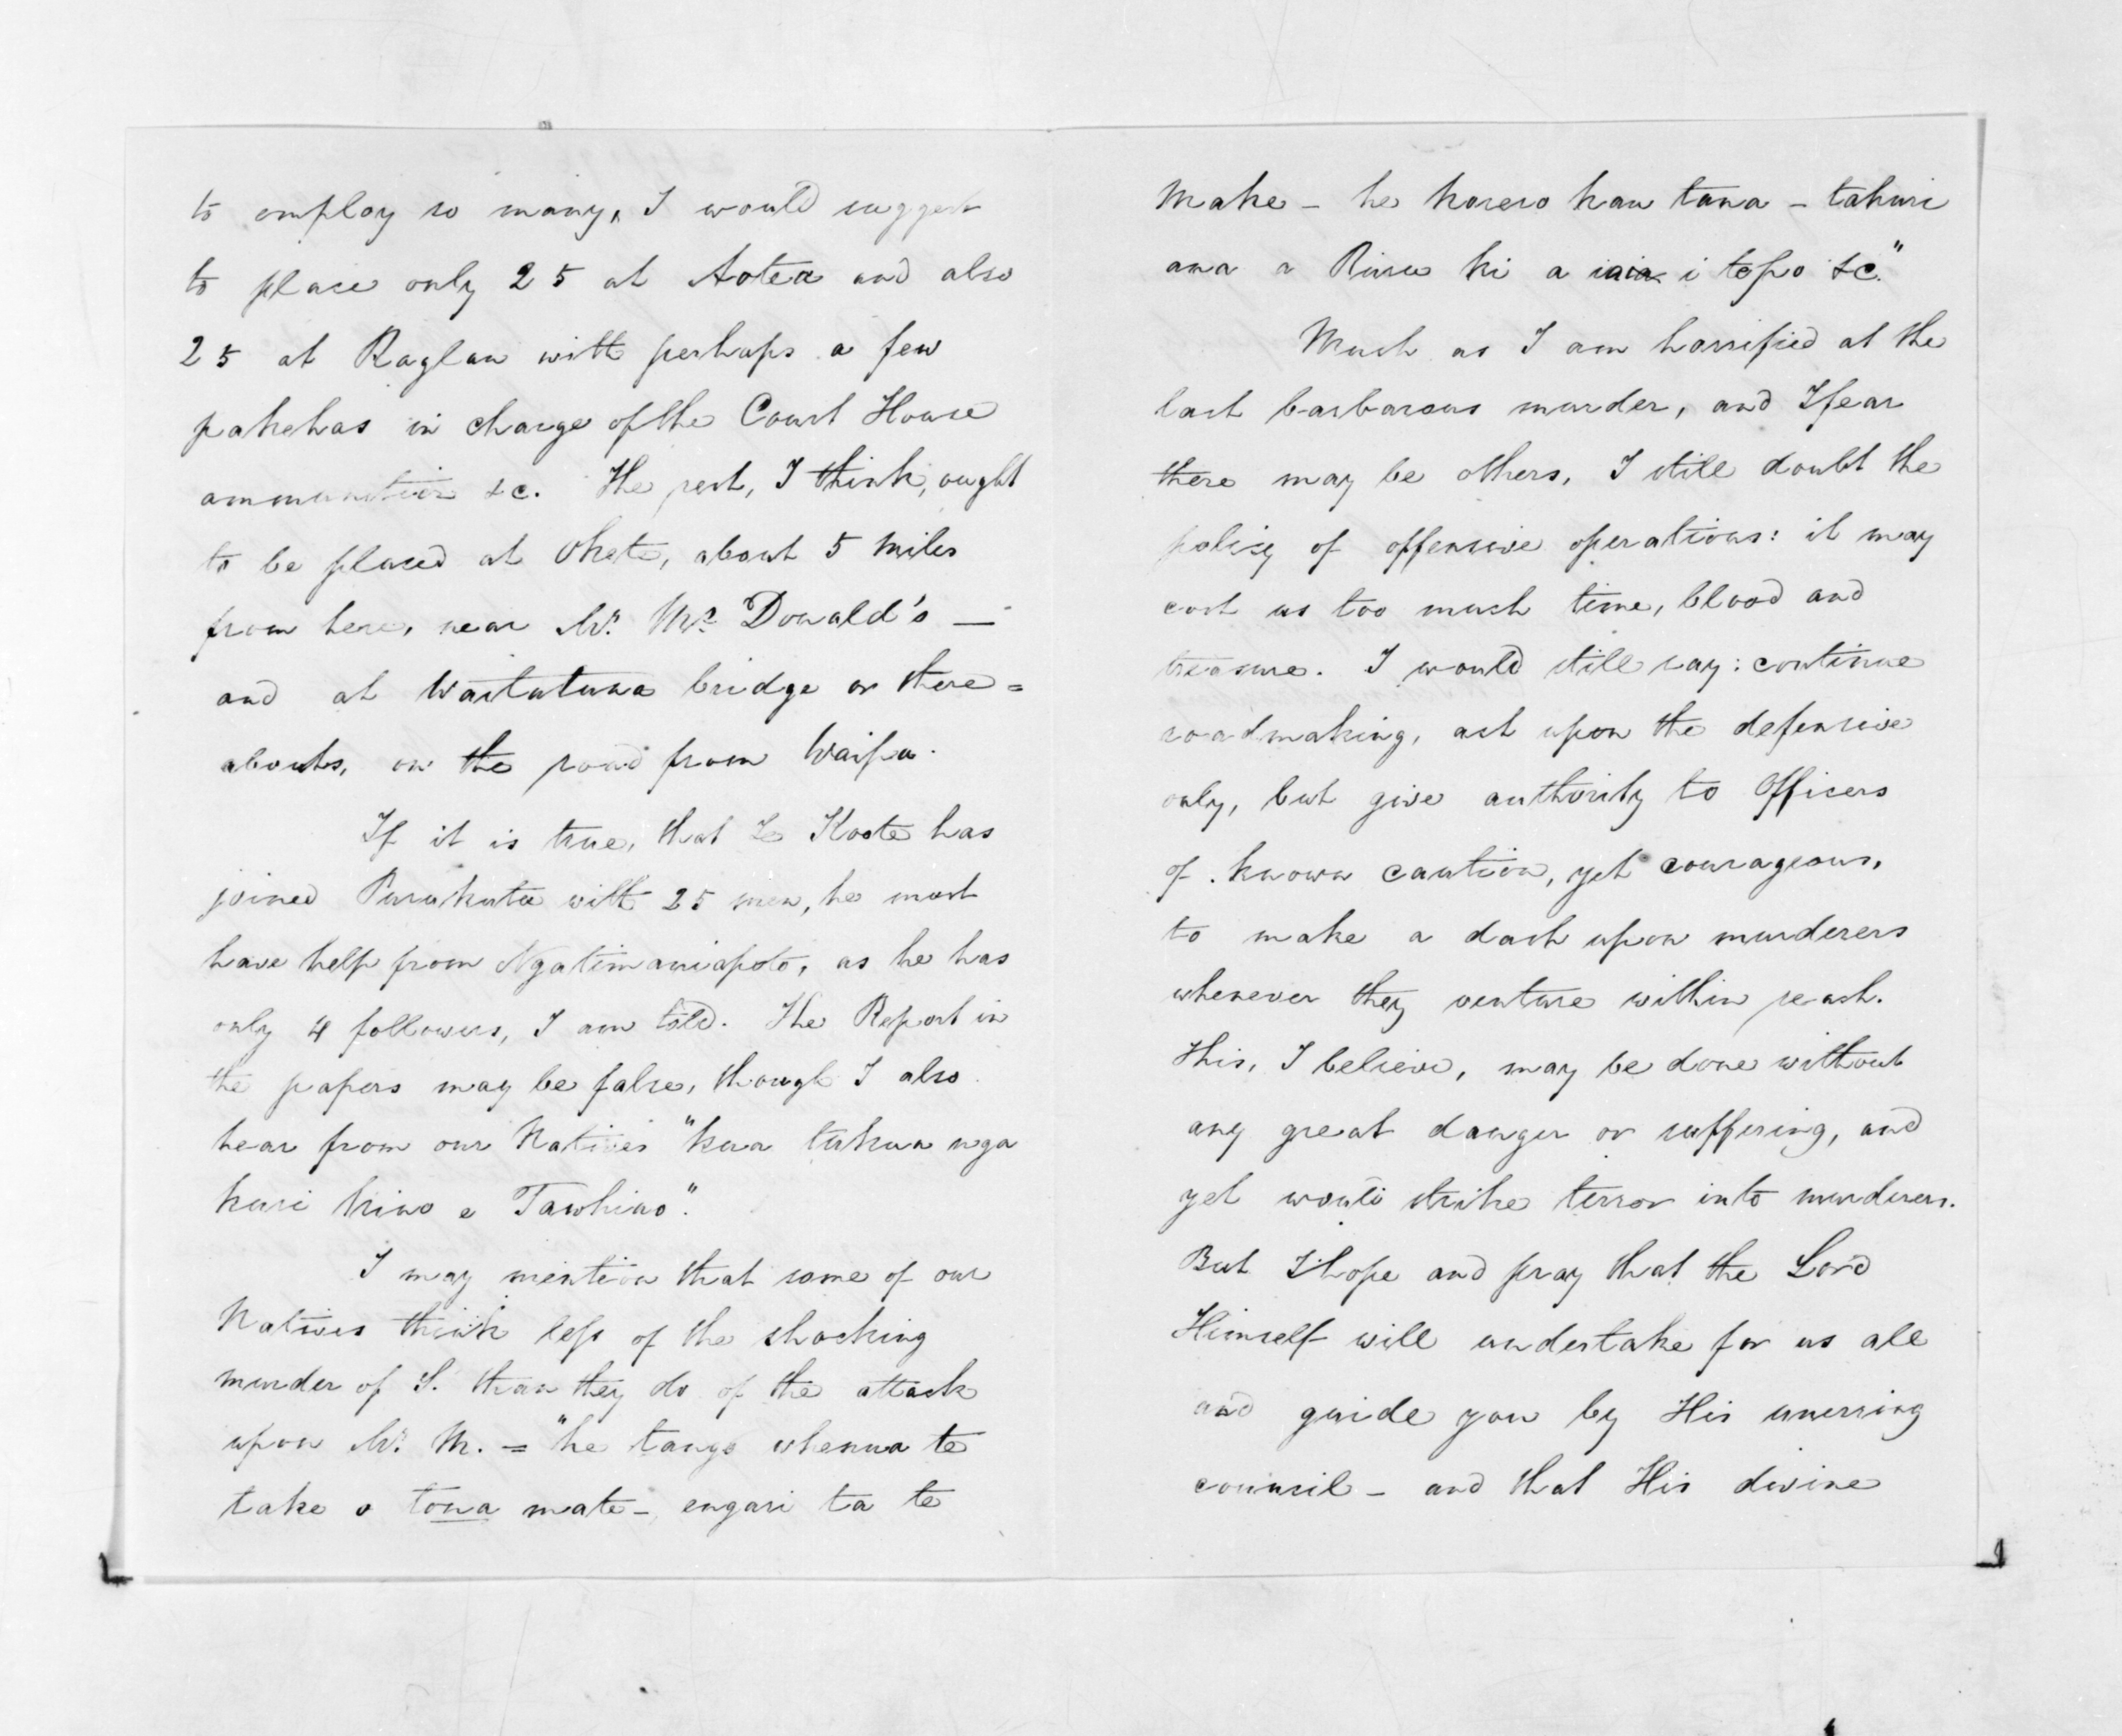 to employ so many, I would suggest
to place only 25 at Aotea and also
25 at Raglan with perhaps a few
pakehas in charge of the Court House
ammunition &c. The rest, I think, ought
to be placed at Okete, about 5 miles
from here, near Mr. Mc Donald's —
and at Waitetuna bridge or there=
abouts, on the road from Waipa.
If it is true, that Te Kooti has
joined Purukutu with 25 men, he must
have help from Ngatimaniapoto, as he has
only 4 followers, I am told. The Report in
the papers may be false, though I also
hear from our Natives "kua tukua nga
kuri kino e Tawhiao".
I may mention that some of our
Natives think less of the shocking
murder of S. than they do of the attack
upon Mr. M. = "he tango whenua te
take o tona mate – engari ta te
Make – he korero kau tana – tahuri
ana a Rino ki a ia i te po &c."
Much as I am horrified at the
last barbarous murder, and I fear
there may be others, I still doubt the
policy of offensive operations: it may
cost us too much time, blood and
treasure. I would still say: continue
roadmaking, act upon the defensive
only, but give authority to Officers
of known caution, yet courageous,
to make a dash upon murderers
whenever they venture within reach.
This, I believe, may be done without
any great danger or suffering, and
yet would strike terror into murderers.
But I hope and pray that the Lord
Himself will undertake for us all
and guide you by His unerring
council – and that His divine